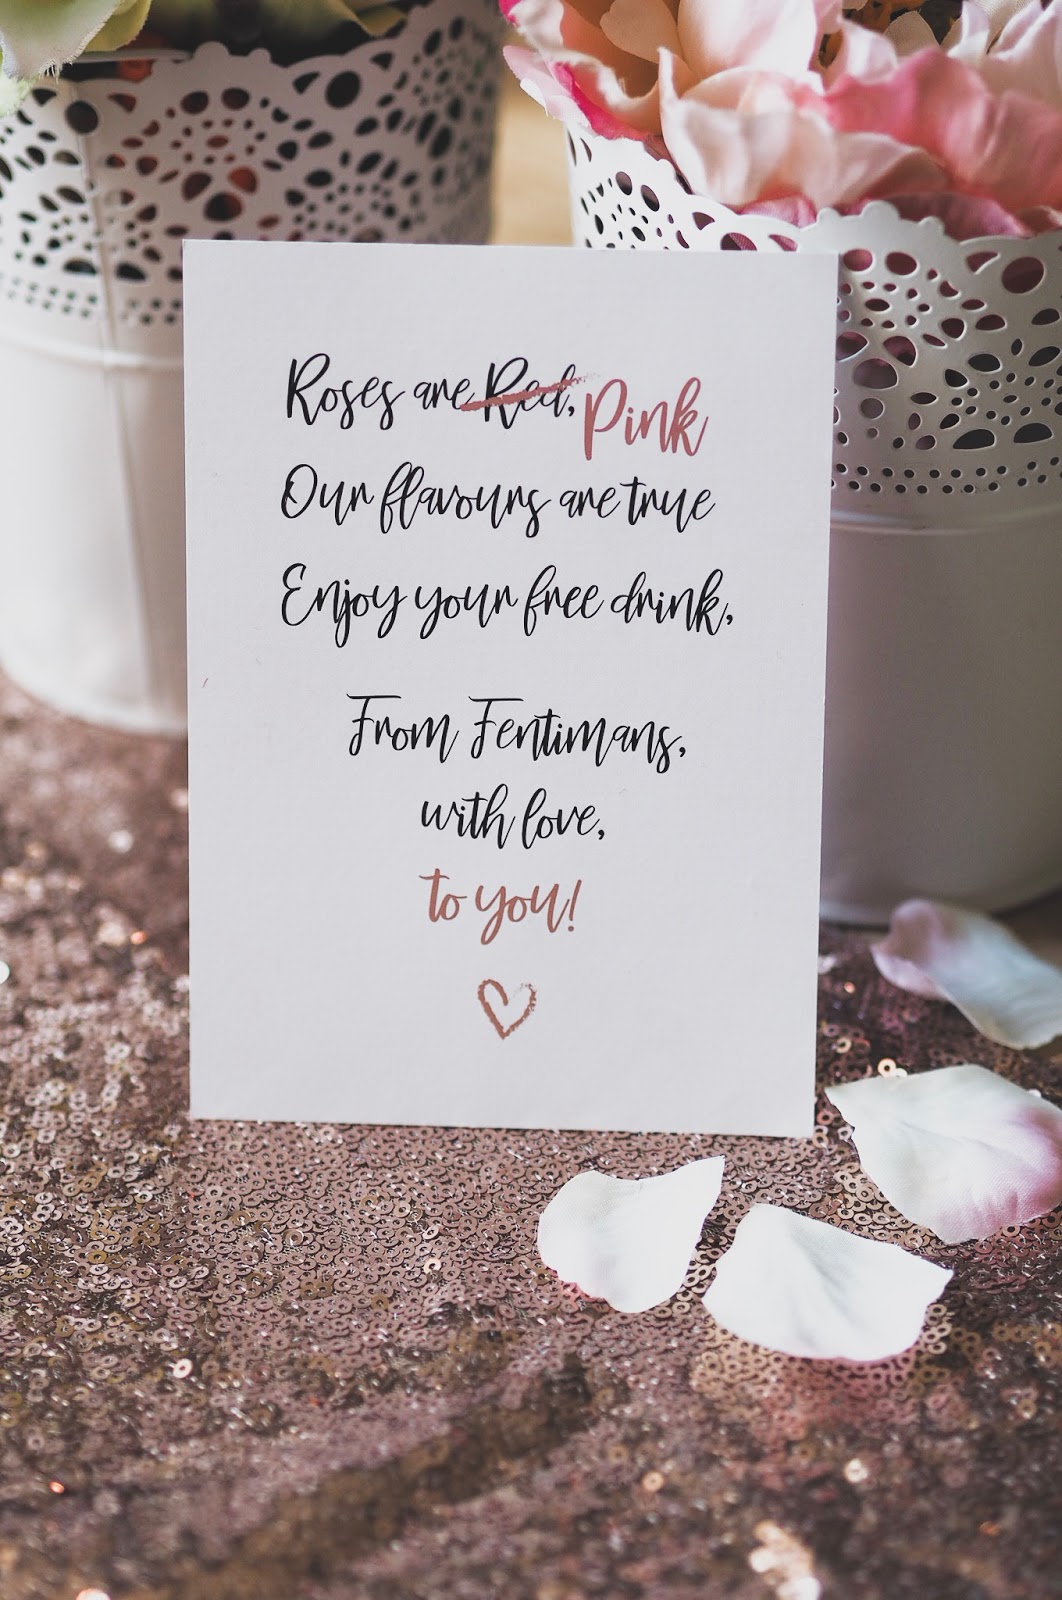 Roses are Red, Pink
Our flavours are true
Enjoy your free drink,
From Fentimans,
with love,
to you!